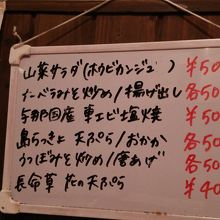 山菜サラダ(ホウビカンジュ ) ¥50
ナーベラみそ炒め/揚げ出し 各50
与那国産 車エビ塩焼 ¥50
島らっきょ 天ぷら/おかか 各50
うつぼみそ炒め/唐あげ 各50
長命草 花の天ぷら ¥40